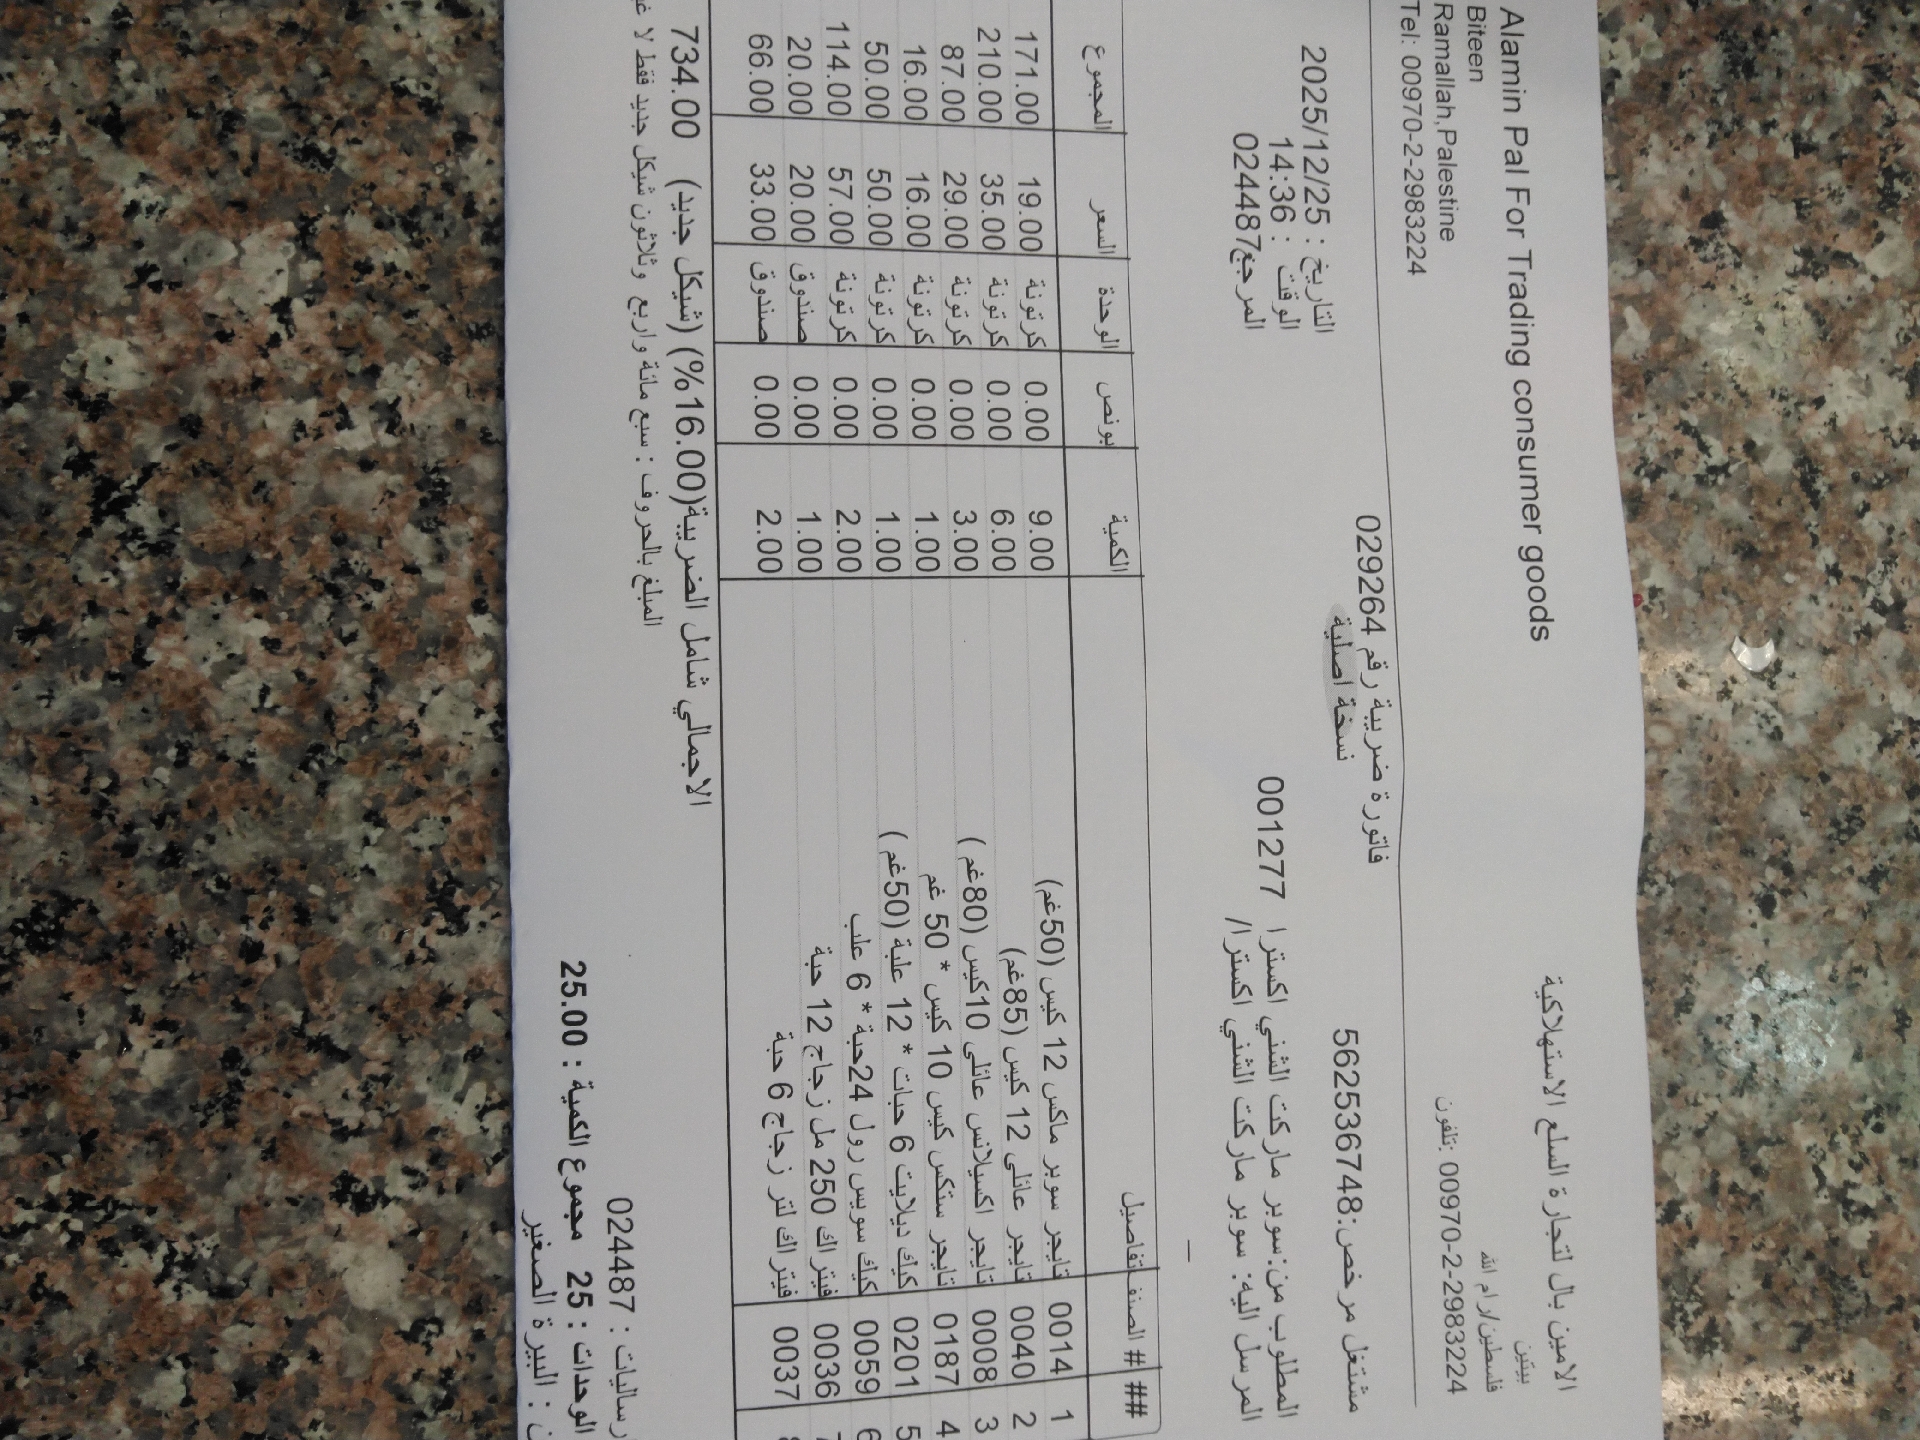 Alamin Pal For Trading consumer goods
الامين بال لتجارة السلع الاستهلاكية
Biteen
بيتين
Ramallah,Palestine
فلسطين/رام الله
Tel: 00970-2-2983224
تلفون: 00970-2-2983224
فاتورة ضريبية رقم 029264
نسخة اصلية
مشتغل مرخص:562536748
التاريخ : 2025/12/25
الوقت : 14:36
المرجع024487
المطلوب من:سوبر ماركت الشني اكسترا 001277
المرسل اليه: سوبر ماركت الشني اكسترا/
## الصنف# تفاصيل الكمية بونص الوحدة السعر المجموع
1 0014 تايجر سوبر ماكس 12 كيس (50غم) 9.00 0.00 كرتونة 19.00 171.00
2 0040 تايجر عائلي 12 كيس (85غم) 6.00 0.00 كرتونة 35.00 210.00
3 0008 تايجر اكسيلانس عائلي 10كيس (80غم ) 3.00 0.00 كرتونة 29.00 87.00
4 0187 تايجر ستكس كيس 10 كيس * 50 غم 1.00 0.00 كرتونة 16.00 16.00
5 0201 كيك ديلايت 6 حبات * 12 علبة (50غم) 1.00 0.00 كرتونة 50.00 50.00
6 0059 كيك سويس رول 24حبة * 6 علب 2.00 0.00 كرتونة 57.00 114.00
0036 فيتراك 250 مل زجاج 12 حبة 1.00 0.00 صندوق 20.00 20.00
0037 فيتراك لتر زجاج 6 حبة 2.00 0.00 صندوق 33.00 66.00
الاجمالي شامل الضريبية(16.00%) (شيكل جديد) 734.00
المبلغ بالحروف : سبع مائة واربع وثلاثون شيكل جديد فقط لا
رساليات : 024487
الوحدات : 25 مجموع الكمية : 25.00
: البيرة الصغير